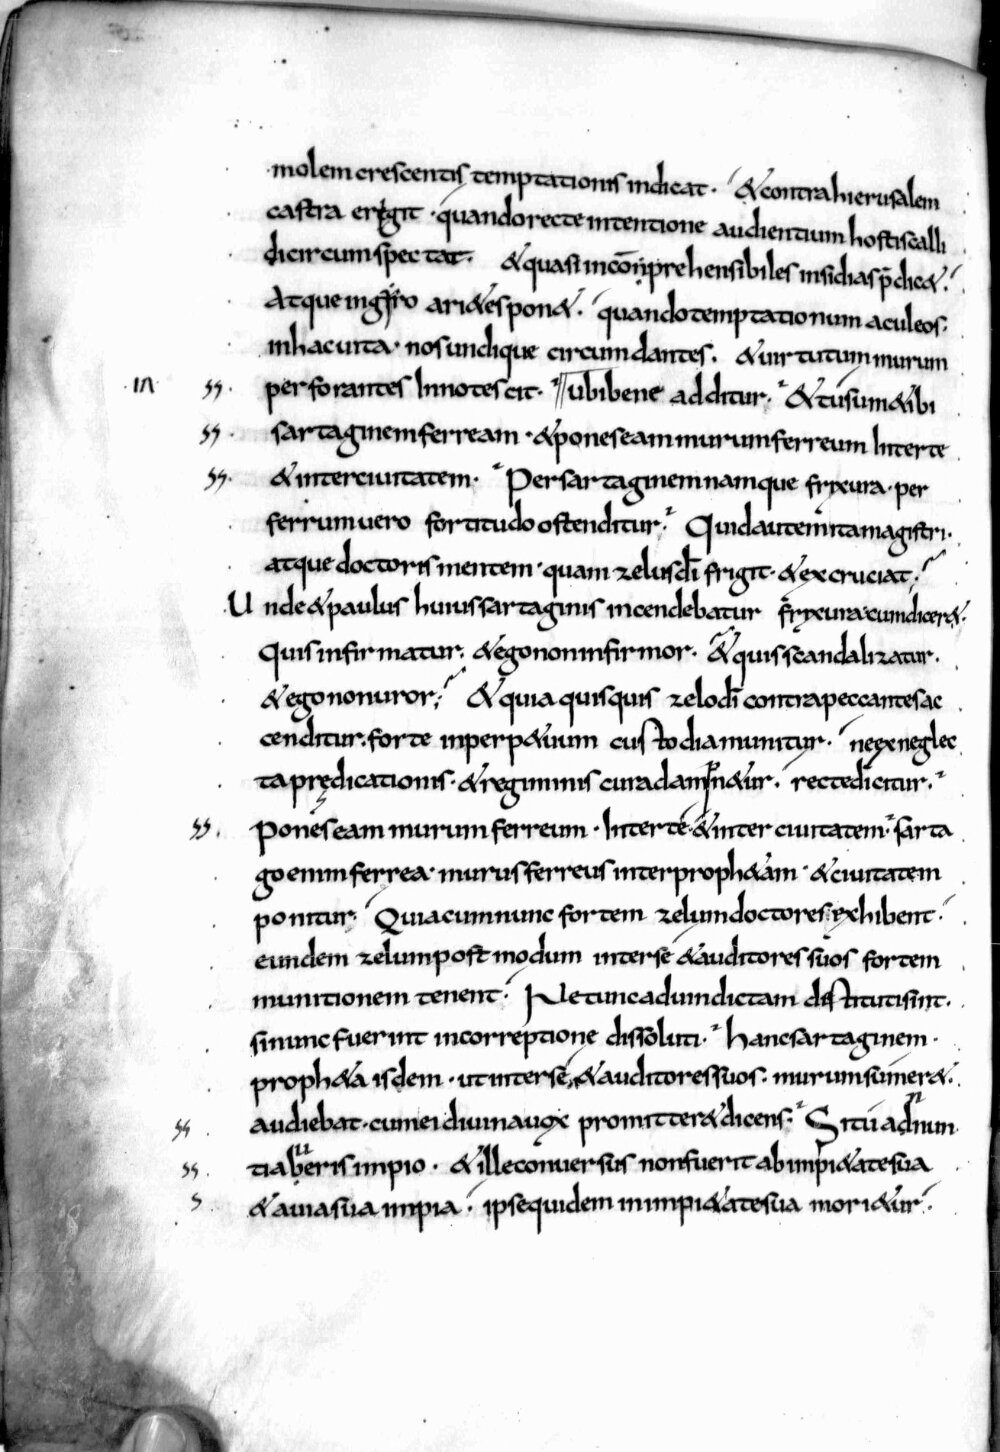 molem crescentis temptationis indicat. & contra hierusalem
castra erigit. quando recte intentione audientium hostis calli
di circumspectat. & quasi inconprehensibiles insidias p̄dic&.
Atque ingyro ari&es pon&. quando temptationum aculeos.
inhac uita nos undique circumdantes. & uirtutum murum
IN ss. perforantes Innotescit. ubi bene additur. & tu sume tibi
ss. sartaginem ferream. & pones eam murum ferreum Inter te
ss. & inter ciuitatem. Per sartaginem namque fryxura. per
ferrum uero fortitudo ostenditur. Quid autem ita magistri.
atque doctoris mentem. quam zelus dī frigit. & excruciat.
Unde & paulus huius sartaginis incendebatur fryxura. cum dicer&.
Quis infirmatur. & ego non infirmor. & quis scandalizatur.
& ego non uror. & quia quisquis zelo dī contra peccantes ac
cenditur. forte inperp&uum custodia munitur. ne ex neglec
ta prędicationis. & regiminis cura damn&ur. recte dicitur.
ss. Pones eam murum ferreum. Inter te & inter ciuitatem. sarta
go enim ferrea. murus ferreus inter proph&am. & ciuitatem
ponitur. Quia cum nunc fortem zelum doctores exhibent.
eundem zelum postmodum inter se & auditores suos fortem
munitionem tenent. Ne tunc ad uindictam destituti sint.
si nunc fuerint in correptione dissoluti. hanc sartaginem.
proph&a isdem. ut inter se, & auditores suos. murum sumer&.
audiebat. cum ei diuina uox promitter& dicens. Si tu adnun
ss. tiaueris impio. & ille conuersus non fuerit ab impi&ate sua
s & a uia sua impia. ipse quidem in impi&ate sua mori&ur.